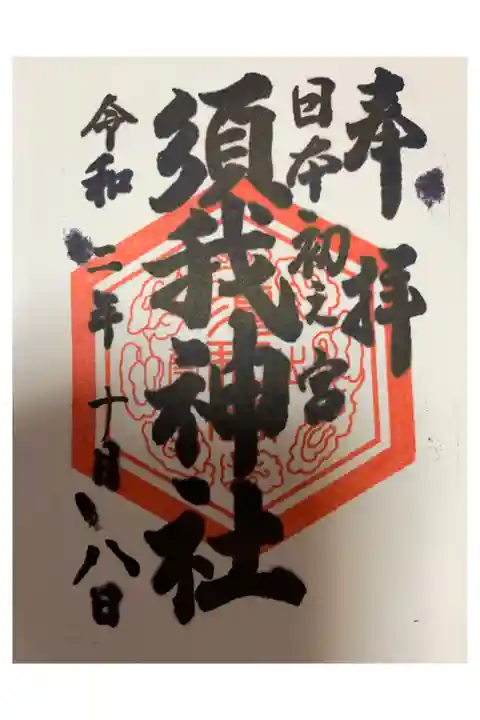 奉拝
日本初之宮
須我神社
令和二年十月八日